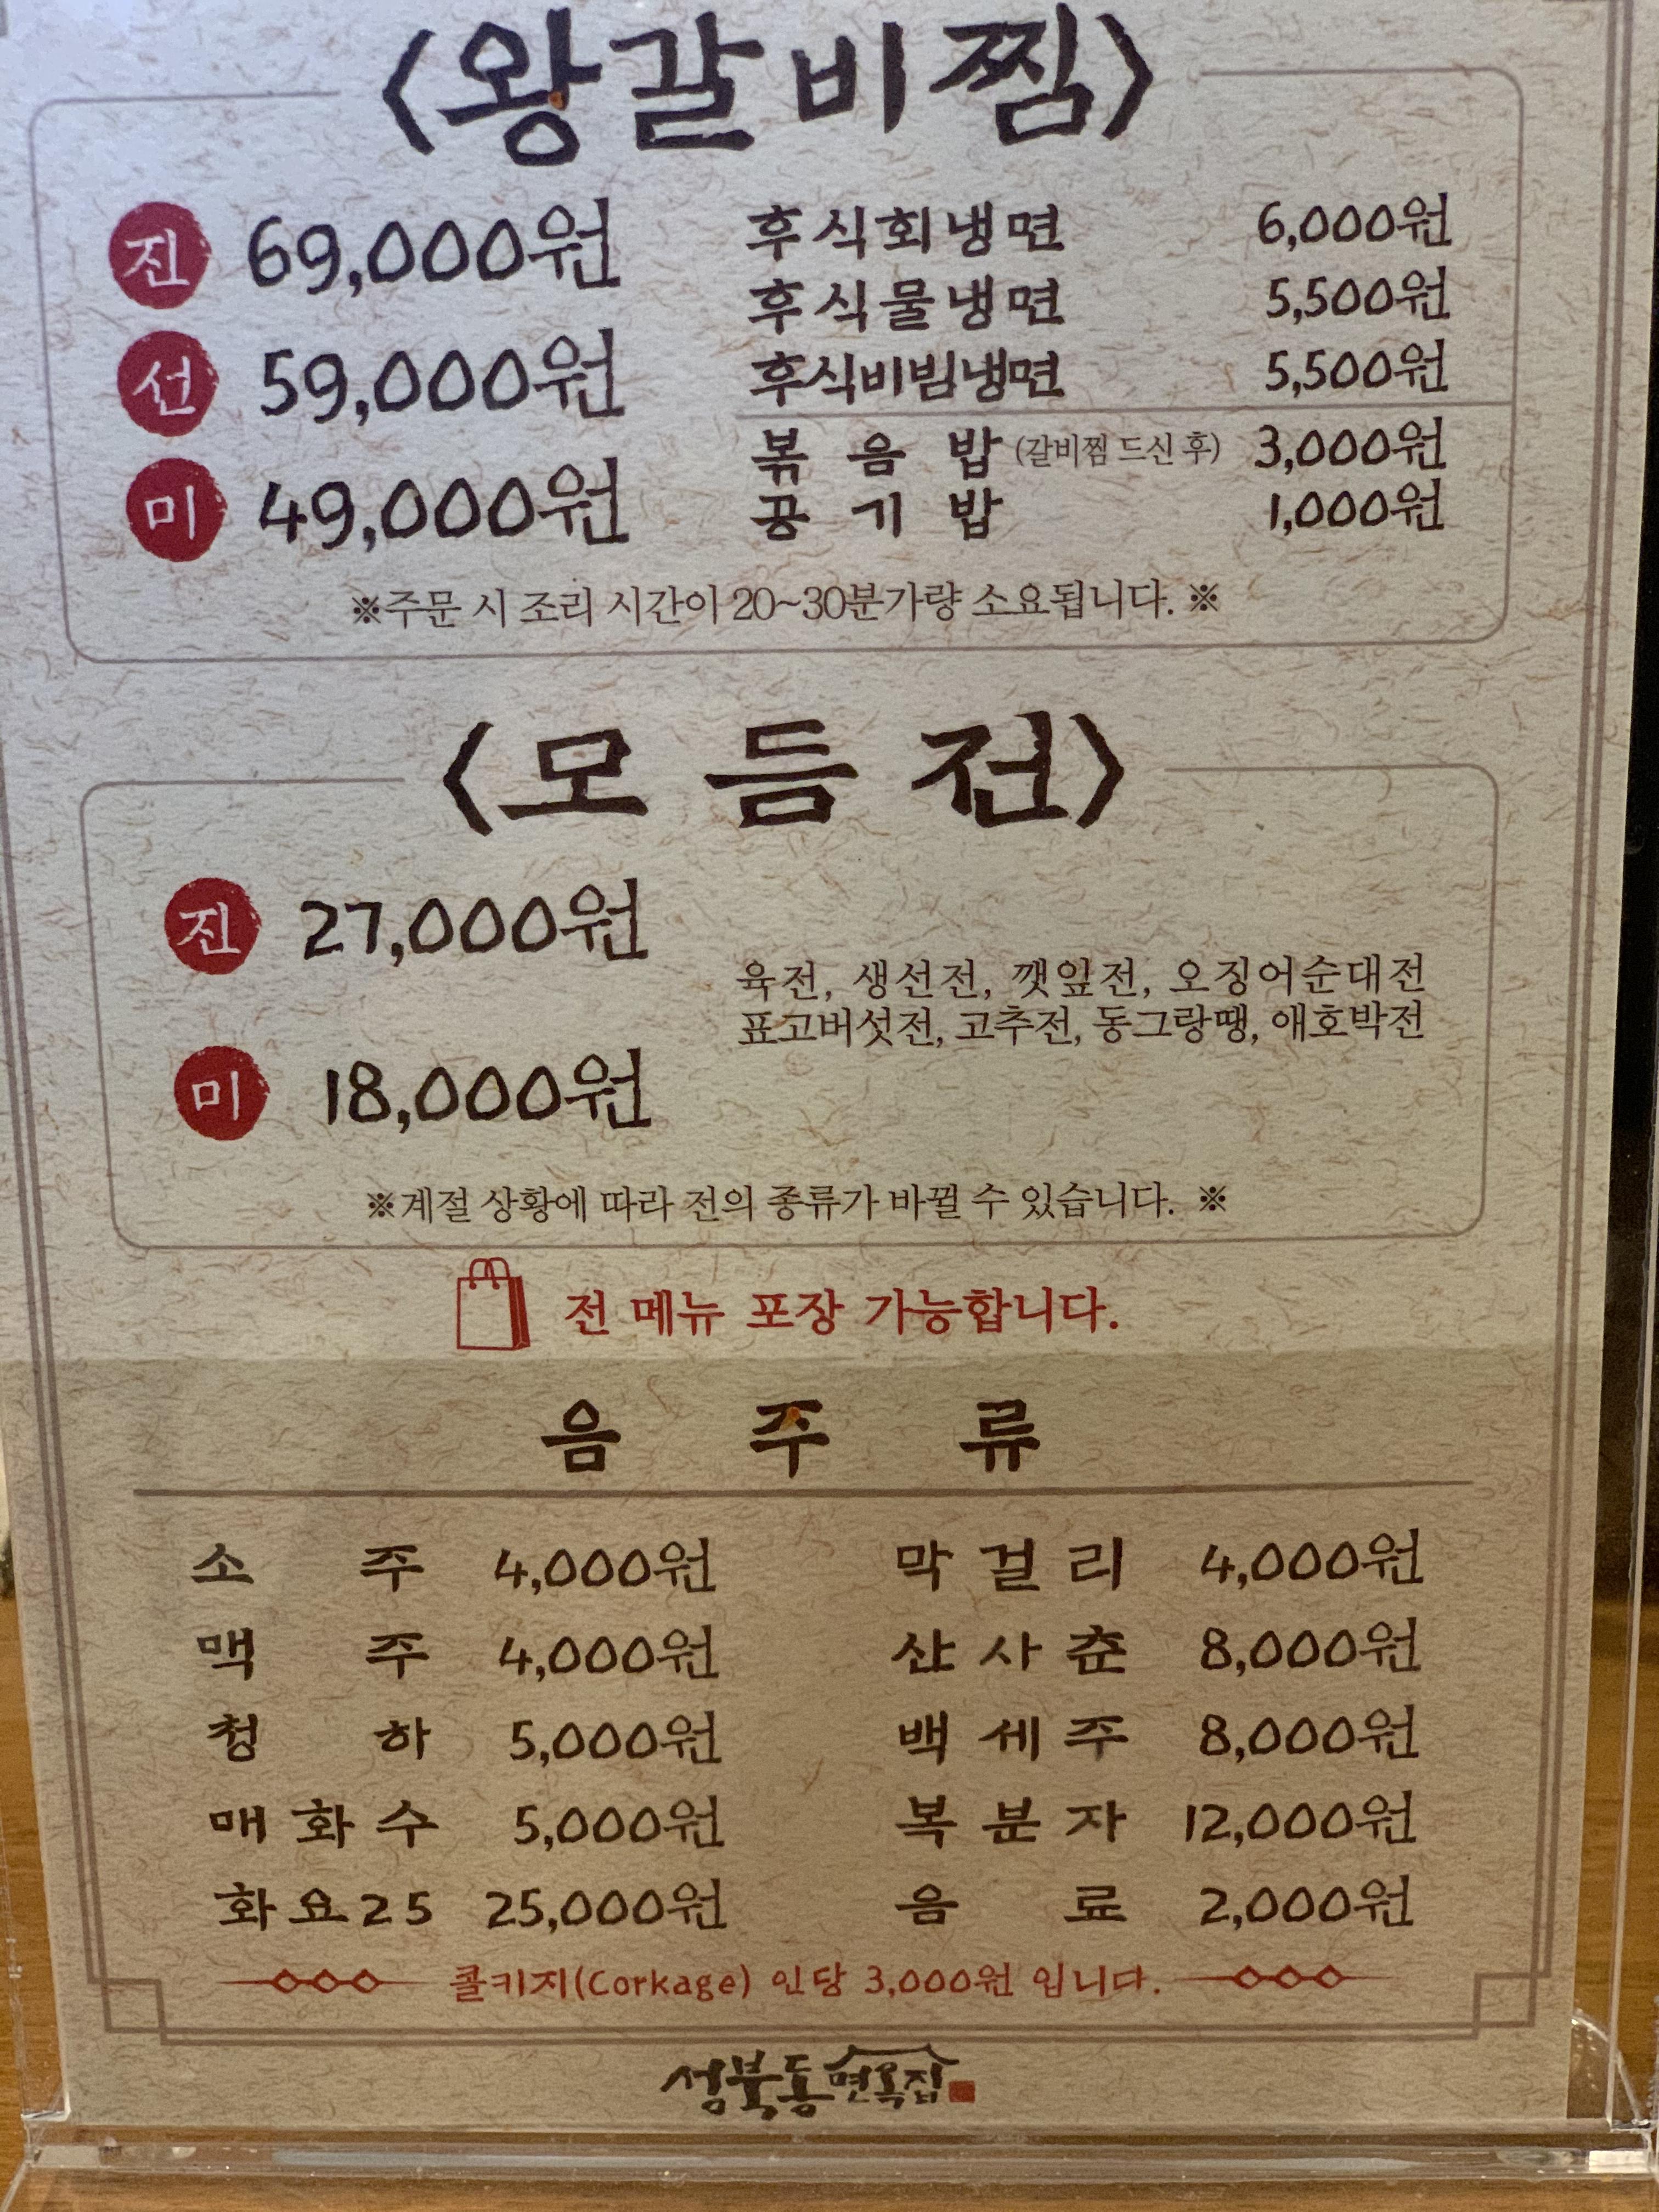 <왕갈비찜>
진 69,000원
선 59,000원
미 49,000원
후식회냉면 6,000원
후식물냉면 5,500원
후식비빔냉면 5,500원
볶음밥 (갈비찜 드신 후) 3,000원
공기밥 1,000원
※주문 시 조리 시간이 20~30분가량 소요됩니다. ※
<모듬전>
진 27,000원
미 18,000원
육전, 생선전, 깻잎전, 오징어순대전
표고버섯전, 고추전, 동그랑땡, 애호박전
※계절 상황에 따라 전의 종류가 바뀔 수 있습니다. ※
전 메뉴 포장 가능합니다.
음주류
소주 4,000원
맥주 4,000원
청하 5,000원
매화수 5,000원
화요25 25,000원
막걸리 4,000원
산사춘 8,000원
백세주 8,000원
복분자 12,000원
음료 2,000원
콜키지(Corkage) 인당 3,000원 입니다.
성북동면옥집